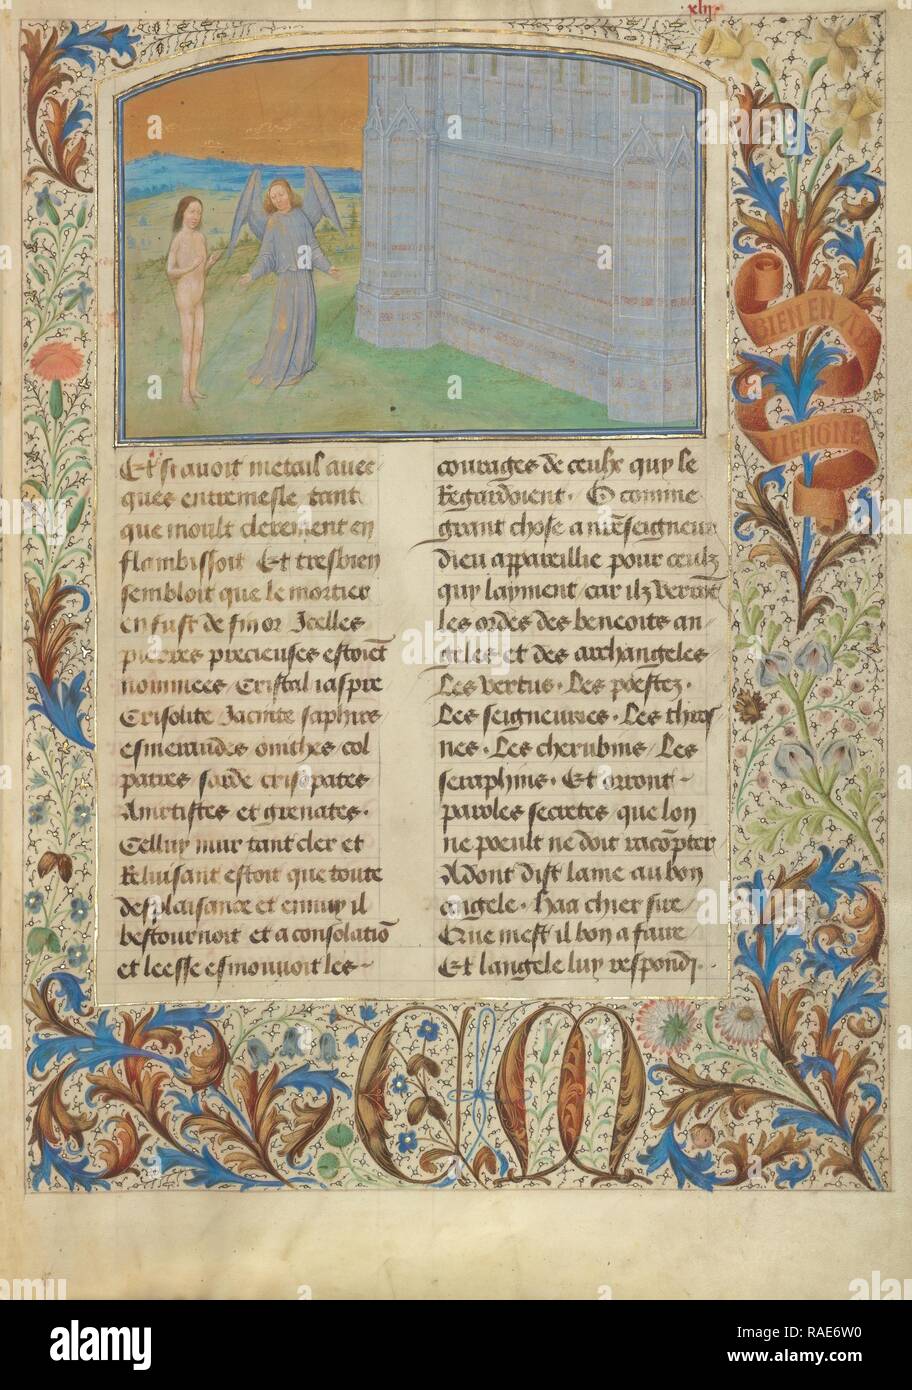 xlij.
BIEN EN A
VIENGNE
Et si avoit metail avec
ques entremesle tant
que moult clerement en
flambissoit Et tresbien
sembloit que le mortier
en fust de fin or Icelles
pierres precieuses estoiēt
nommees / Cristal iaspre
Crisolite Jacinte saphirs
esmeraudes onithes col
patres sarde crisopates
Ametistes et grenates.
Celluy mur tant cler et
Reluisant estoit que toute
desplaisance et ennuy il
bestournoit et a consolatiō
et leesse esmouvoit les
courages de ceulx quy le
Regardoient. O comme
grant chose a nr̄eseigneur
dieu appareillie pour ceulz
quy layment / car ilz verrōt
les ordes des benoits an
geles et des archangeles
Les vertus. Les poestez.
Les seigneuries. Les thros
nes. Les cherubins / Les
seraphins. Et orront
paroles secretes que lon
ne poeult ne doit racōpter
Adont dist lame au bon
angele. Haa chier sire /
Que mest il bon a faire
Et langele luy respondj.
C M
alamy
Image ID: RAE6W0
www.alamy.com